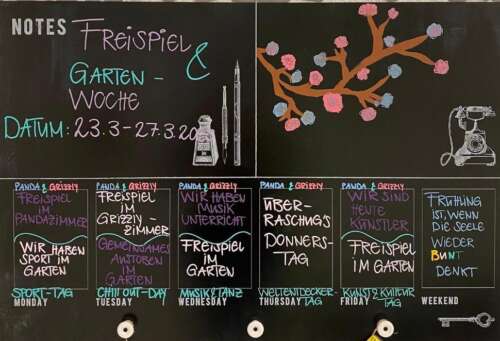 NOTES
FREISPIEL
&
GARTEN-
WOCHE
DATUM: 23.3-27.3.20
PANDA & GRIZZLY
FREISPIEL
IM
PANDAZIMMER
WIR HABEN
SPORT IM
GARTEN
SPORT-TAG
MONDAY
PANDA & GRIZZLY
FREISPIEL
IM
GRIZZLY-
ZIMMER
GEMEINSAMES
AUSTOBEN
IM
GARTEN
CHILL OUT-DAY
TUESDAY
PANDA & GRIZZLY
WIR HABEN
MUSIK
UNTERRICHT
FREISPIEL
IM
GARTEN
MUSIK&TANZ
WEDNESDAY
PANDA & GRIZZLY
ÜBER-
RASCHUG'S
DONNERS-
TAG
WELTENTDECKER-
TAG
THURSDAY
PANDA & GRIZZLY
WIR SIND
HEUTE
KÜNSTLER
FREISPIEL
IM GARTEN
KUNST&KULTUR
TAG
FRIDAY
FRÜHLING
IST, WENN
DIE SEELE
WIEDER
BUNT
DENKT
WEEKEND